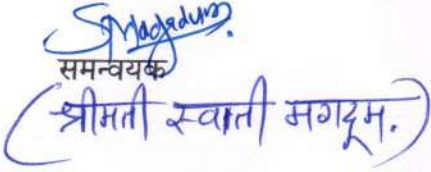 SMagadum.
समन्वयक
(श्रीमती स्वाती मगदूम.)